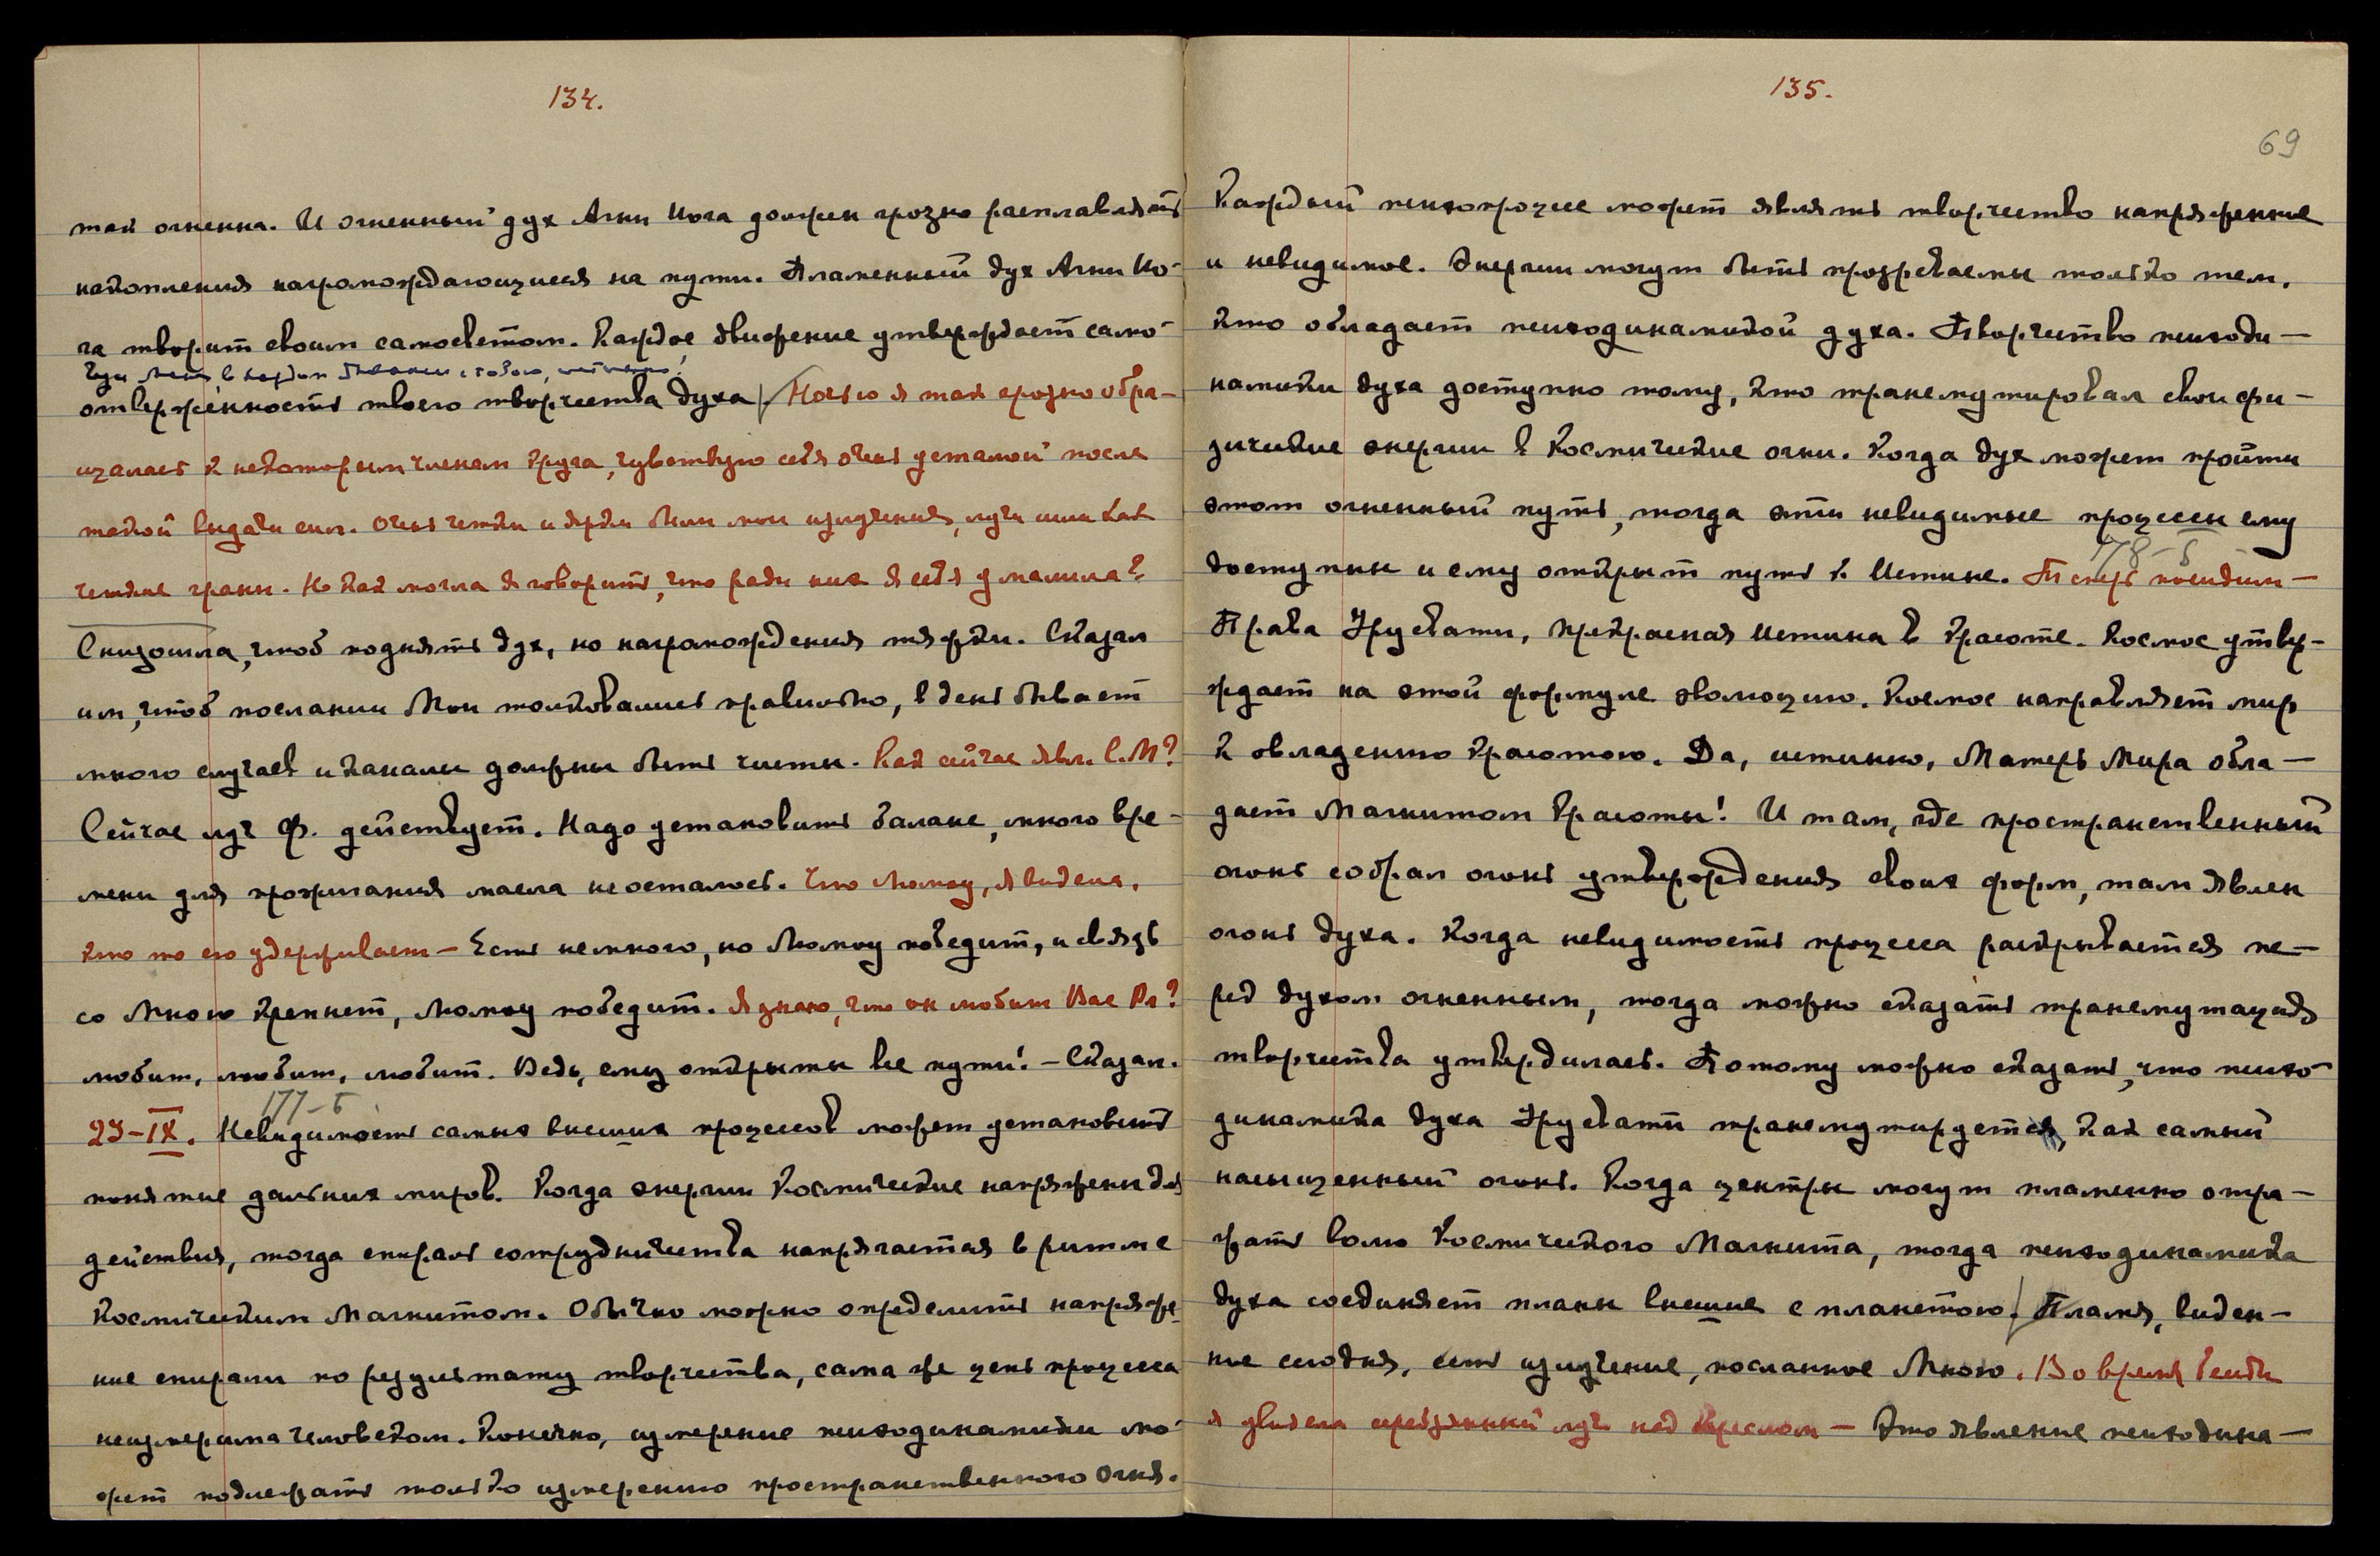 134.
так огненна. И огненный дух Агни Йога должен грозно расплавлять
накопления нагромождающиеся на пути. Пламенный дух Агни Йо-
га творит своим самосветом. Каждое движение утверждает само-
Луч Мой, в каждом дыхании с тобою, истинно!
отверженность твоего творчества духа. Ночью я так грозно обра-
щалась к некоторым членам Круга, чувствую себя очень усталой после
такой выдачи сил. Очень четки и ярки были мои излучения, лучи шли как
четкие грани. Но как могла я говорить, что ради них я себя умалила?
Снизошла, чтоб поднять дух, но нагромождения тяжки. Сказал
им, чтоб послания Мои толковались правильно, в день бывает
много случаев и каналы должны быть чисты. Как сейчас явл. С.М?
Сейчас луч Ф. действует. Надо установить баланс, много вре-
мени для прожигания масла не осталось. Что Люмоу, я видела,
кто то его удерживает — Есть немного, но Люмоу победит, и связь
со Мною крепнет, Люмоу победит. Я знаю, что он любит Вас Вл?
любит, любит, любит. Ведь, ему открыты все пути! — Сказал.
177-Б
23-IX. Невидимость самых высших процессов может установить
понятие дальних миров. Когда энергии Космические напряжены для
действия, тогда спираль сотрудничества напрягается в ритме
Космическим Магнитом. Обычно можно определить напряже-
ние спирали по результату творчества, сама же цепь процесса
неизмерима человеком. Конечно, измерение психодинамики мо-
жет подлежать только измерению пространственного Огня.
135.
69
Каждый психопроцесс может являть творчество напряженное
и невидимое. Энергии могут быть прозреваемы только тем,
кто обладает психодинамикой духа. Творчество психоди-
намики духа доступно тому, кто трансмутировал свои фи-
зические энергии в Космические огни. Когда дух может пройти
этот огненный путь, тогда эти невидимые процессы ему
178-Б
доступны и ему открыт путь к Истине. Теперь посидим —
Права Урусвати, прекрасная Истина в Красоте. Космос утвер-
ждает на этой формуле эволюцию. Космос направляет мир
к овладению Красотою. Да, истинно, Матерь Мира обла-
дает Магнитом Красоты! И там, где пространственный
огонь собрал огонь утверждения своих форм, там явлен
огонь духа. Когда невидимость процесса раскрывается пе-
ред духом огненным, тогда можно сказать трансмутация
творчества утвердилась. Потому можно сказать, что психо-
динамика духа Урусвати трансмутируется, как самый
насыщенный огонь. Когда центры могут пламенно отра-
жать волю Космического Магнита, тогда психодинамика
духа соединяет планы высшие с планетою. Пламя, виден-
ное сегодня, есть излучение, посланное Мною. Во время беседы
я увидела серебрянный луч над креслом — Это явление психодина-